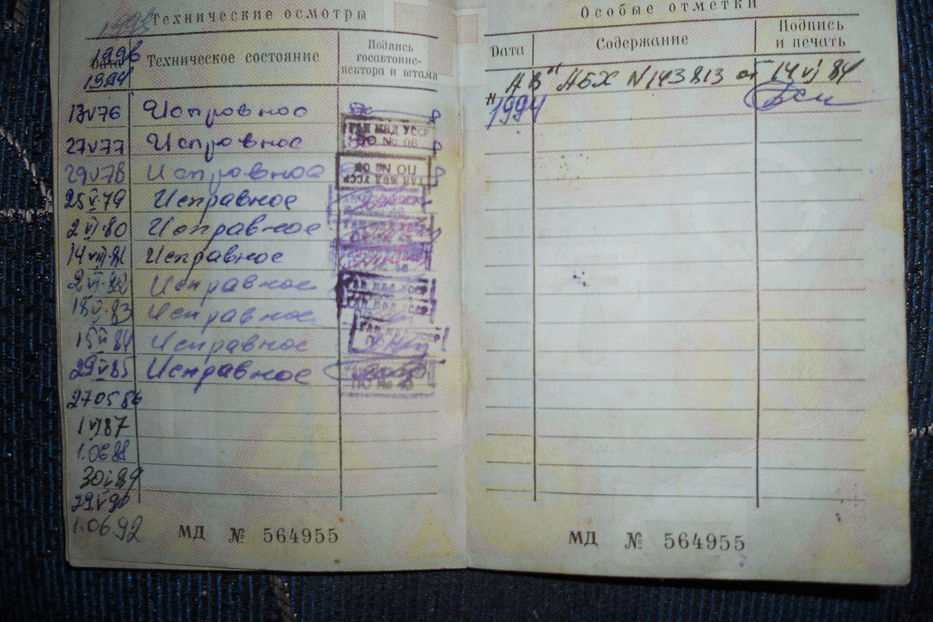 Технические осмотры
1995
1996
1994
Дата
Техническое состояние
Подпись госавтоинс-
пектора и штамп
13 V 76 Исправное
ГАИ МВД УССР
ПО № 06
27 V 77 Исправное
29 V 78 Исправное
ГАИ МВД УССР
ПО № 06
25 V 79 Исправное
2 VI 80 Исправное
14 VII 81 Исправное
2 VI 82 Исправное
ГАИ МВД УССР
18 V 83 Исправное
ГАИ МВД УССР
15 VI 84 Исправное
29 V 85 Исправное
27 05 86
1 VI 87
1.06 88
30 V 89
29 V 90
1.06.92
МД № 564955
Особые отметки
Дата
Содержание
Подпись
и печать
"АВ" АБХ N 143813 от 14 VI 84
1994
МД № 564955